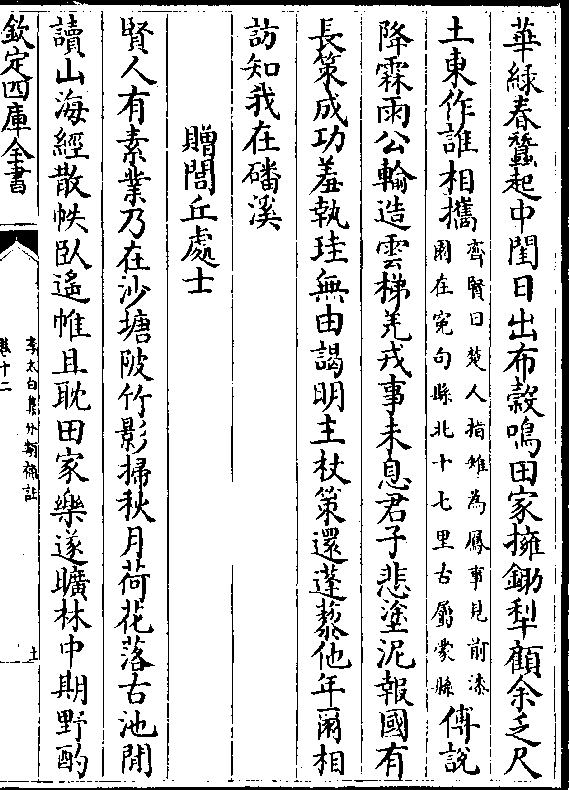 華緑春蠶起中閨日出布穀鳴田家擁鋤犁顧余乏尺
土東作誰相攜
齊賢曰楚人指雉為鳳事見前漆
園在寃句縣北十七里古屬蒙縣
傅說
降霖雨公輸造雲梯羌戎事未息君子悲塗泥報國有
長策成功羞執珪無由謁明主杖策還蓬藜他年爾相
訪知我在磻溪
贈閭丘處士
賢人有素業乃在沙塘陂竹影掃秋月荷花落古池閒
讀山海經散帙臥遙帷且耽田家樂遂曠林中期野酌
欽定四庫全書
李太白集分類補註
卷十二
十一